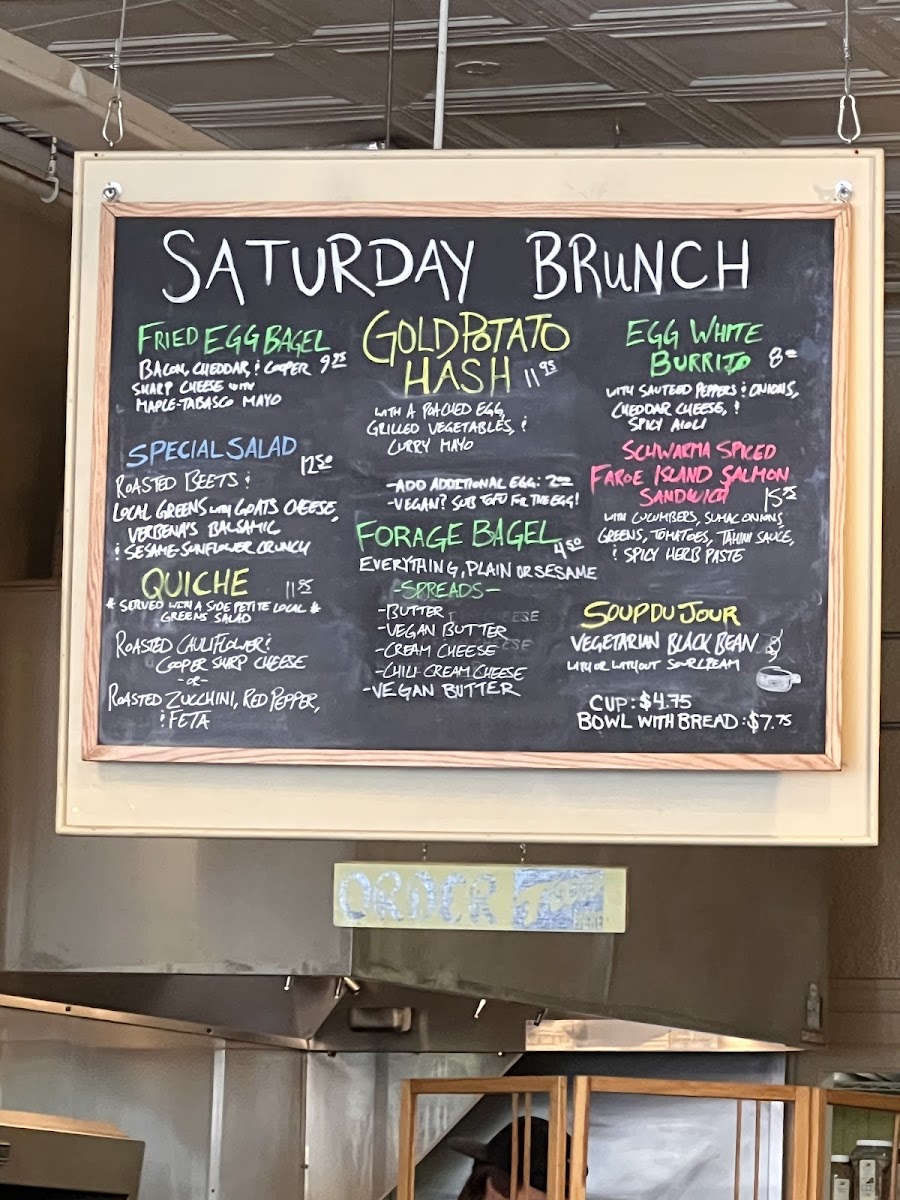 SATURDAY BRUNCH
FRIED EGG BAGEL
BACON, CHEDDAR, & COOPER 9.25
SHARP CHEESE WITH
MAPLE-TABASCO MAYO
SPECIAL SALAD
12.50
ROASTED BEETS &
LOCAL GREENS WITH GOATS CHEESE,
VERBENA'S BALSAMIC
& SESAME-SUNFLOWER CRUNCH
QUICHE 11.95
* SERVED WITH A SIDE PETITE LOCAL *
GREENS SALAD
ROASTED CAULIFLOWER &
COOPER SHARP CHEESE
-OR-
ROASTED ZUCCHINI, RED PEPPER,
& FETA
GOLD POTATO
HASH 11.95
WITH A POACHED EGG,
GRILLED VEGETABLES, &
CURRY MAYO
-ADD ADDITIONAL EGG: 2.00
-VEGAN? SUB TOFU FOR THE EGG!
FORAGE BAGEL 4.50
EVERYTHING, PLAIN OR SESAME
-SPREADS-
-BUTTER
-VEGAN BUTTER
-CREAM CHEESE
-CHILI CREAM CHEESE
-VEGAN BUTTER
EGG WHITE
BURRITO 8.00
WITH SAUTEED PEPPERS & ONIONS,
CHEDDAR CHEESE, &
SPICY AIOLI
SCHWARMA SPICED
FAROE ISLAND SALMON
SANDWICH
WITH CUCUMBERS, SUMAC ONIONS,
GREENS, TOMATOES, TAHINI SAUCE,
& SPICY HERB PASTE
SOUP DU JOUR
VEGETARIAN BLACK BEAN
WITH OR WITHOUT SOUR CREAM
CUP: $4.75
BOWL WITH BREAD: $7.75
ORDER